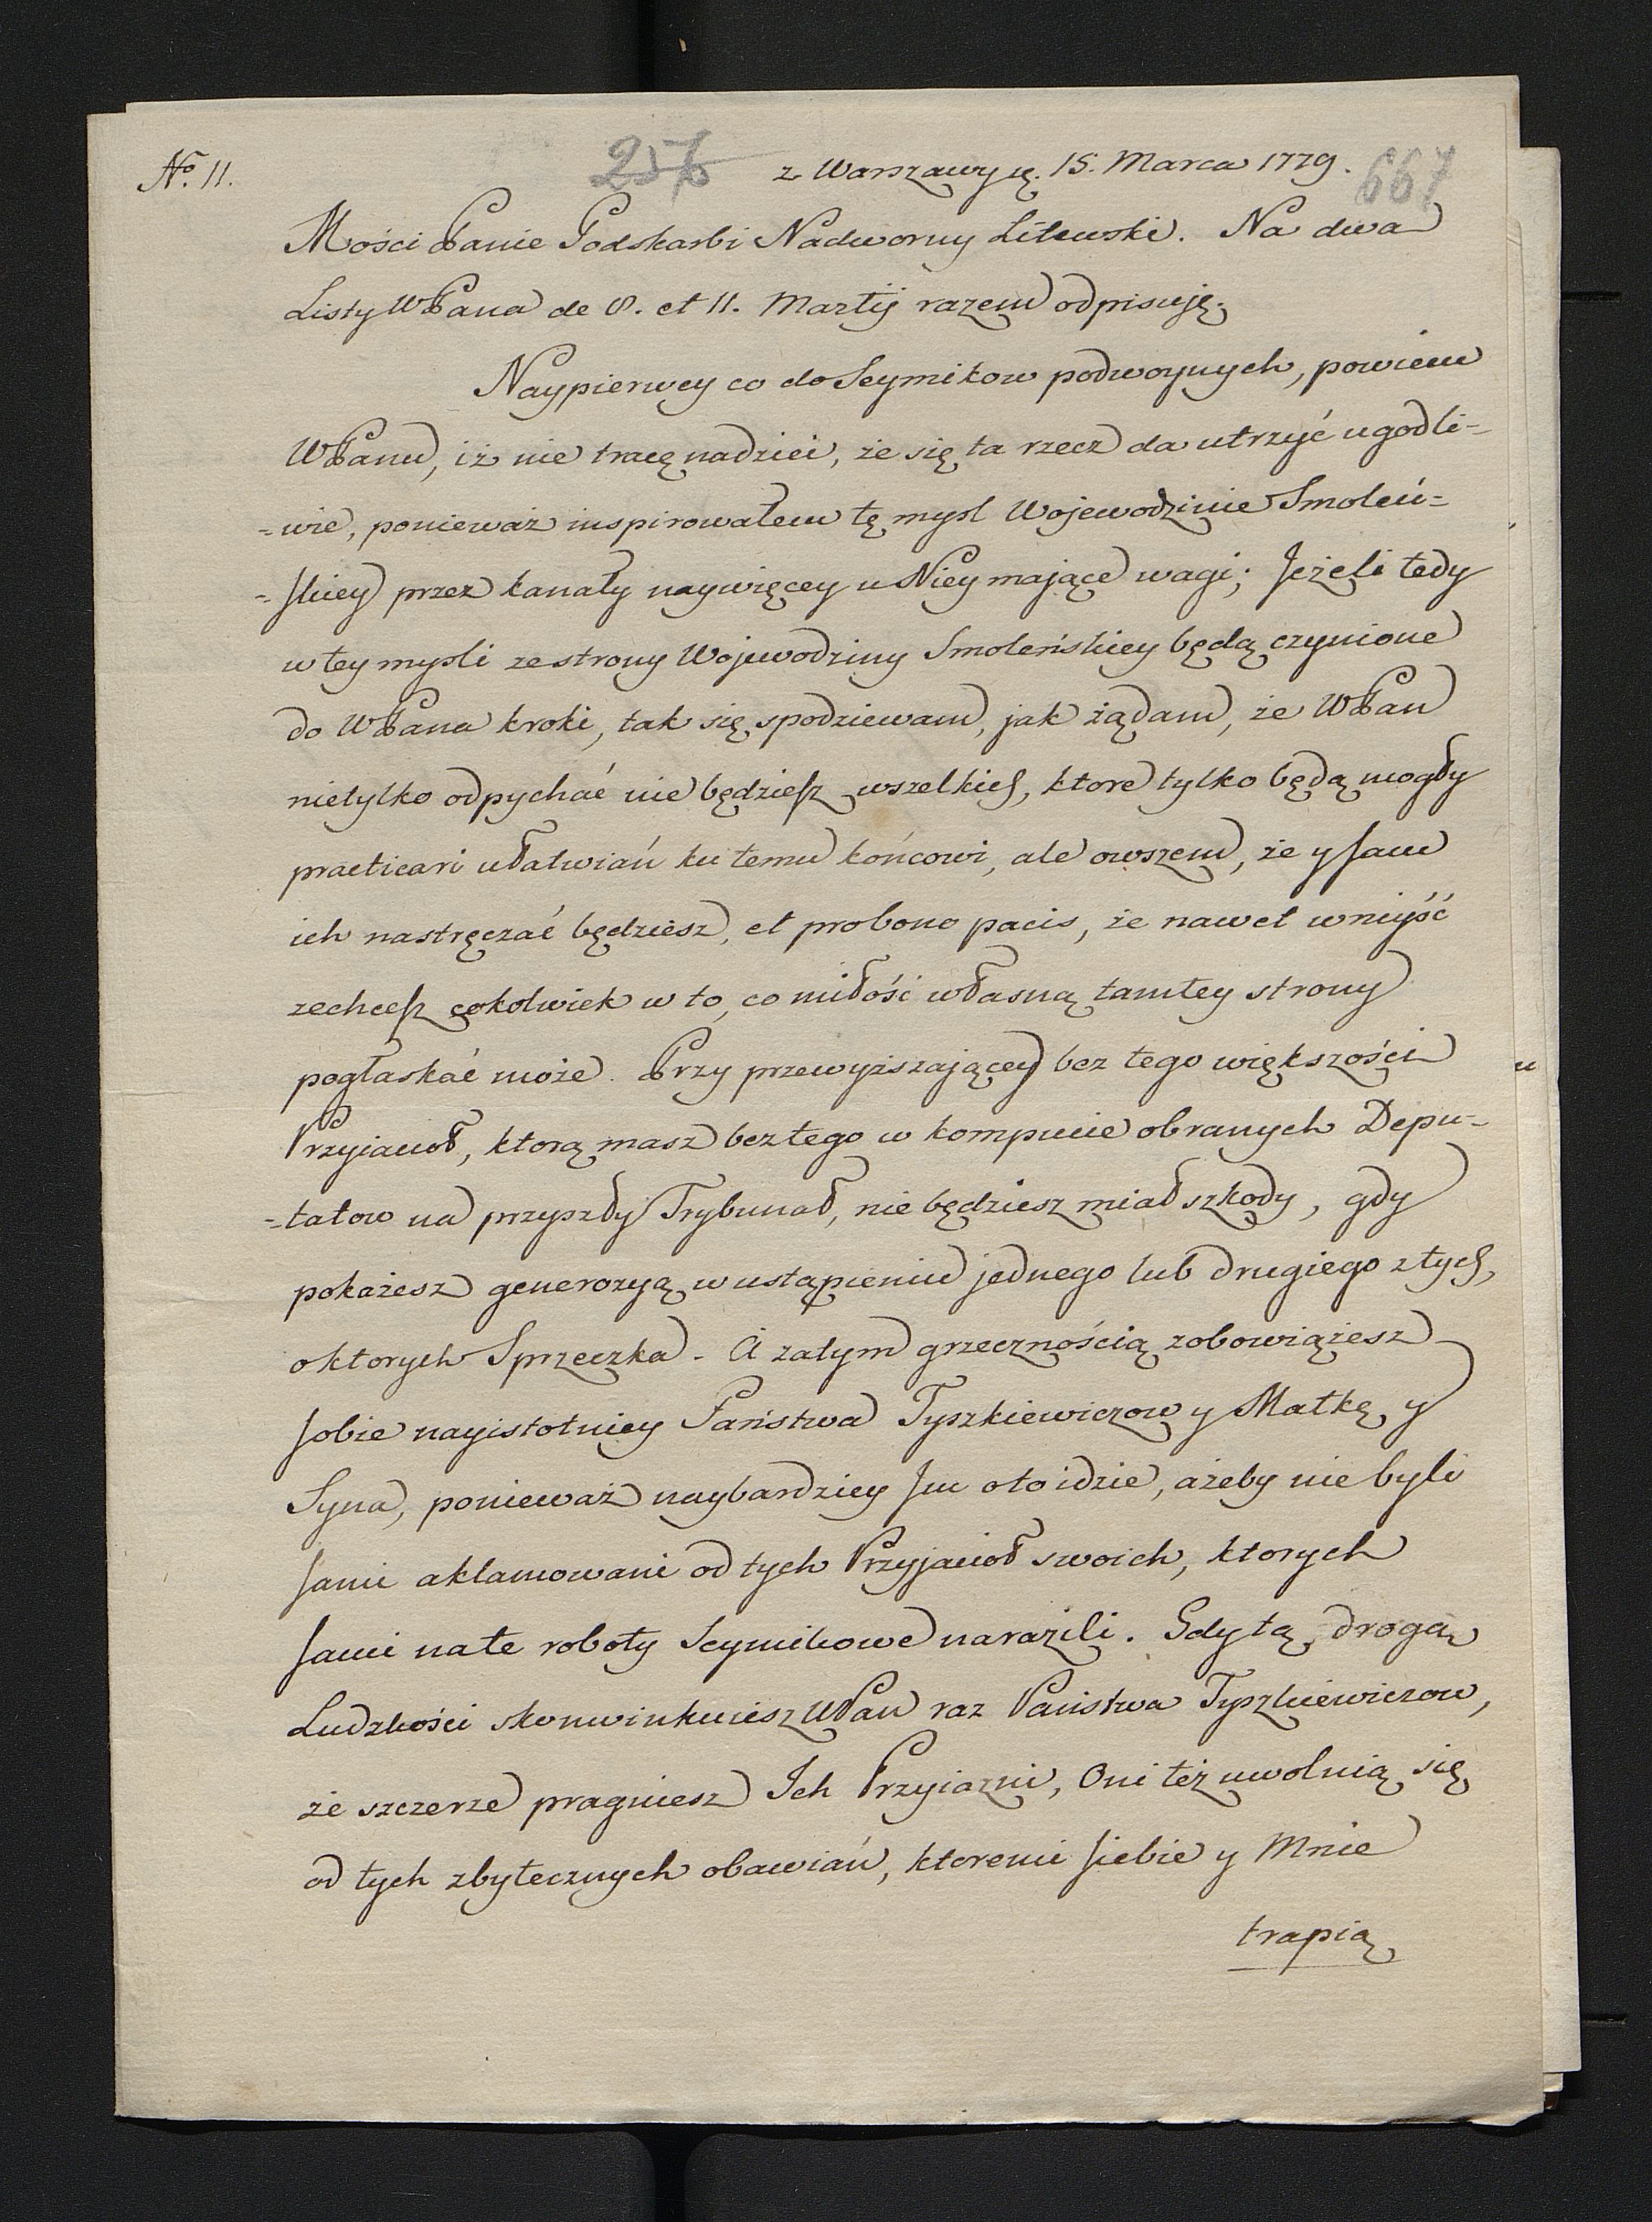 No. 11.
256
z Warszawy ą. 15. Marca 1779.
667
Mości Panie Podskarbi Nadworny Litewski. Na dwa
Listy WPana de 8. et 11. Martij razem odpisuję.
Naypierwey co do Seymikow podwoynych, powiem
WPanu, iż nie tracę nadziei, że się ta rzecz da utrzyć ugodli-
-wie, ponieważ inspirowałem tę mysl Wojewodzinie Smoleń-
-skiey przez kanały naywięcey u Niey mające wagi; Jeżeli tedy
w tey mysli ze strony Wojewodziny Smoleńskiey będą czynione
do WPana kroki, tak się spodziewam, jak żądam, że WPan
nietylko odpychać nie będziesz wszelkich, ktore tylko będą mogły
practicari ułatwiań ku temu końcowi, ale owszem, że y sam
ich nastręczać będziesz, et pro bono pacis, że nawet wniyść
zechcesz cokolwiek w to, co miłość własną tamtey strony
pogłaskać może. Przy przewyższającey bez tego większości
Przyiacioł, ktorą masz bez tego w kompucie obranych Depu-
-tatow na przyszły Trybunał, nie będziesz miał szkody, gdy
pokażesz generozyą w ustąpieniu jednego lub drugiego z tych,
o ktorych Sprzeczka. A zatym grzecznością zobowiążesz
sobie nayistotniey Państwa Tyszkiewiczow y Matkę y
Syna, ponieważ naybardziey Im o to idzie, ażeby nie byli
sami aklamowani od tych Przyjacioł swoich, ktorych
sami na te roboty Seymikowe narazili. Gdy tą drogą
Ludzkości skonwinkuiesz WPan raz Państwa Tyszkiewiczow,
że szczerze pragniesz Ich Przyiazni, Oni też uwolnią się
od tych zbytecznych obawiań, ktoremi siebie y Mnie
trapią